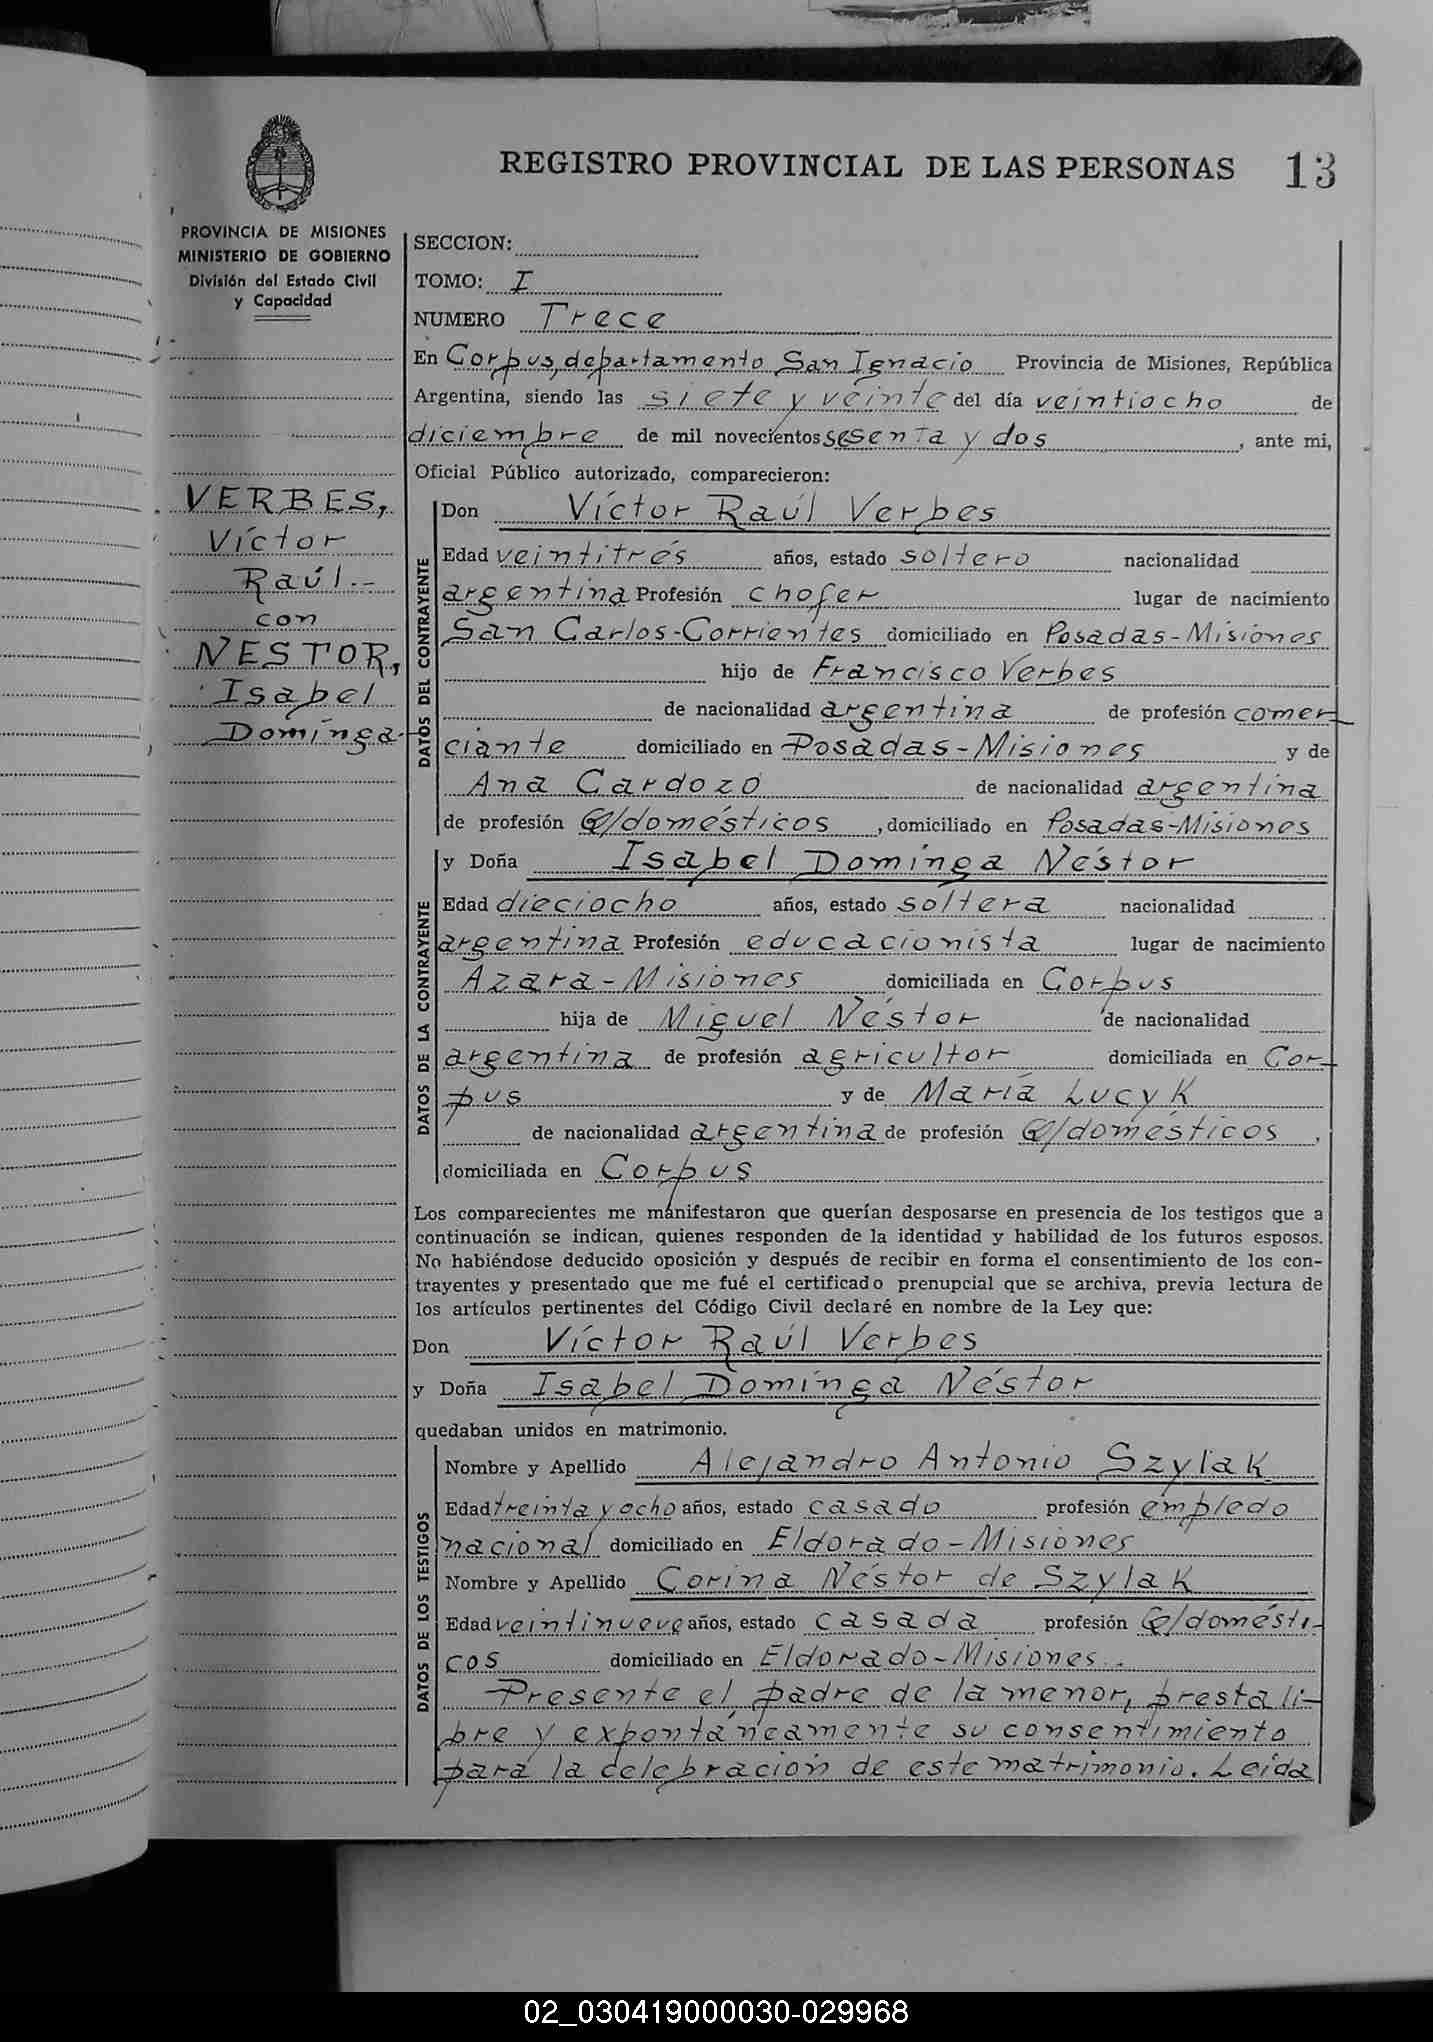 REGISTRO PROVINCIAL DE LAS PERSONAS 13
PROVINCIA DE MISIONES
MINISTERIO DE GOBIERNO
División del Estado Civil
y Capacidad
VERBES,
Víctor
Raúl.-
con
NESTOR,
Isabel
Dominga.-
SECCION:
TOMO: I
NUMERO Trece
En Corpus, departamento San Ignacio Provincia de Misiones, República
Argentina, siendo las siete y veinte del día veintiocho de
diciembre de mil novecientos sesenta y dos, ante mi,
Oficial Público autorizado, comparecieron:
DATOS DEL CONTRAYENTE
Don Víctor Raúl Verbes
Edad veintitrés años, estado soltero nacionalidad
argentina Profesión chofer lugar de nacimiento
San Carlos-Corrientes domiciliado en Posadas-Misiones
hijo de Francisco Verbes
de nacionalidad argentina de profesión comer
ciante domiciliado en Posadas-Misiones y de
Ana Cardozo de nacionalidad argentina
de profesión Q/domésticos, domiciliado en Posadas-Misiones
DATOS DE LA CONTRAYENTE
y Doña Isabel Dominga Néstor
Edad dieciocho años, estado soltera nacionalidad
argentina Profesión educacionista lugar de nacimiento
Azara-Misiones domiciliada en Corpus
hija de Miguel Néstor de nacionalidad
argentina de profesión agricultor domiciliada en Cor-
pus y de María Lucyk
de nacionalidad argentina de profesión Q/domésticos,
domiciliada en Corpus
Los comparecientes me manifestaron que querían desposarse en presencia de los testigos que a
continuación se indican, quienes responden de la identidad y habilidad de los futuros esposos.
No habiéndose deducido oposición y después de recibir en forma el consentimiento de los con-
trayentes y presentado que me fué el certificado prenupcial que se archiva, previa lectura de
los artículos pertinentes del Código Civil declaré en nombre de la Ley que:
Don Víctor Raúl Verbes
y Doña Isabel Dominga Néstor
quedaban unidos en matrimonio.
DATOS DE LOS TESTIGOS
Nombre y Apellido Alejandro Antonio Szylak
Edad treinta y ocho años, estado casado profesión empledo
nacional domiciliado en Eldorado-Misiones
Nombre y Apellido Corina Néstor de Szylak
Edad veintinueve años, estado casada profesión Q/domésti-
cos domiciliado en Eldorado-Misiones.
Presente el padre de la menor, presta li-
bre y expontáneamente su consentimiento
para la celebración de este matrimonio. Leida
02_030419000030-029968